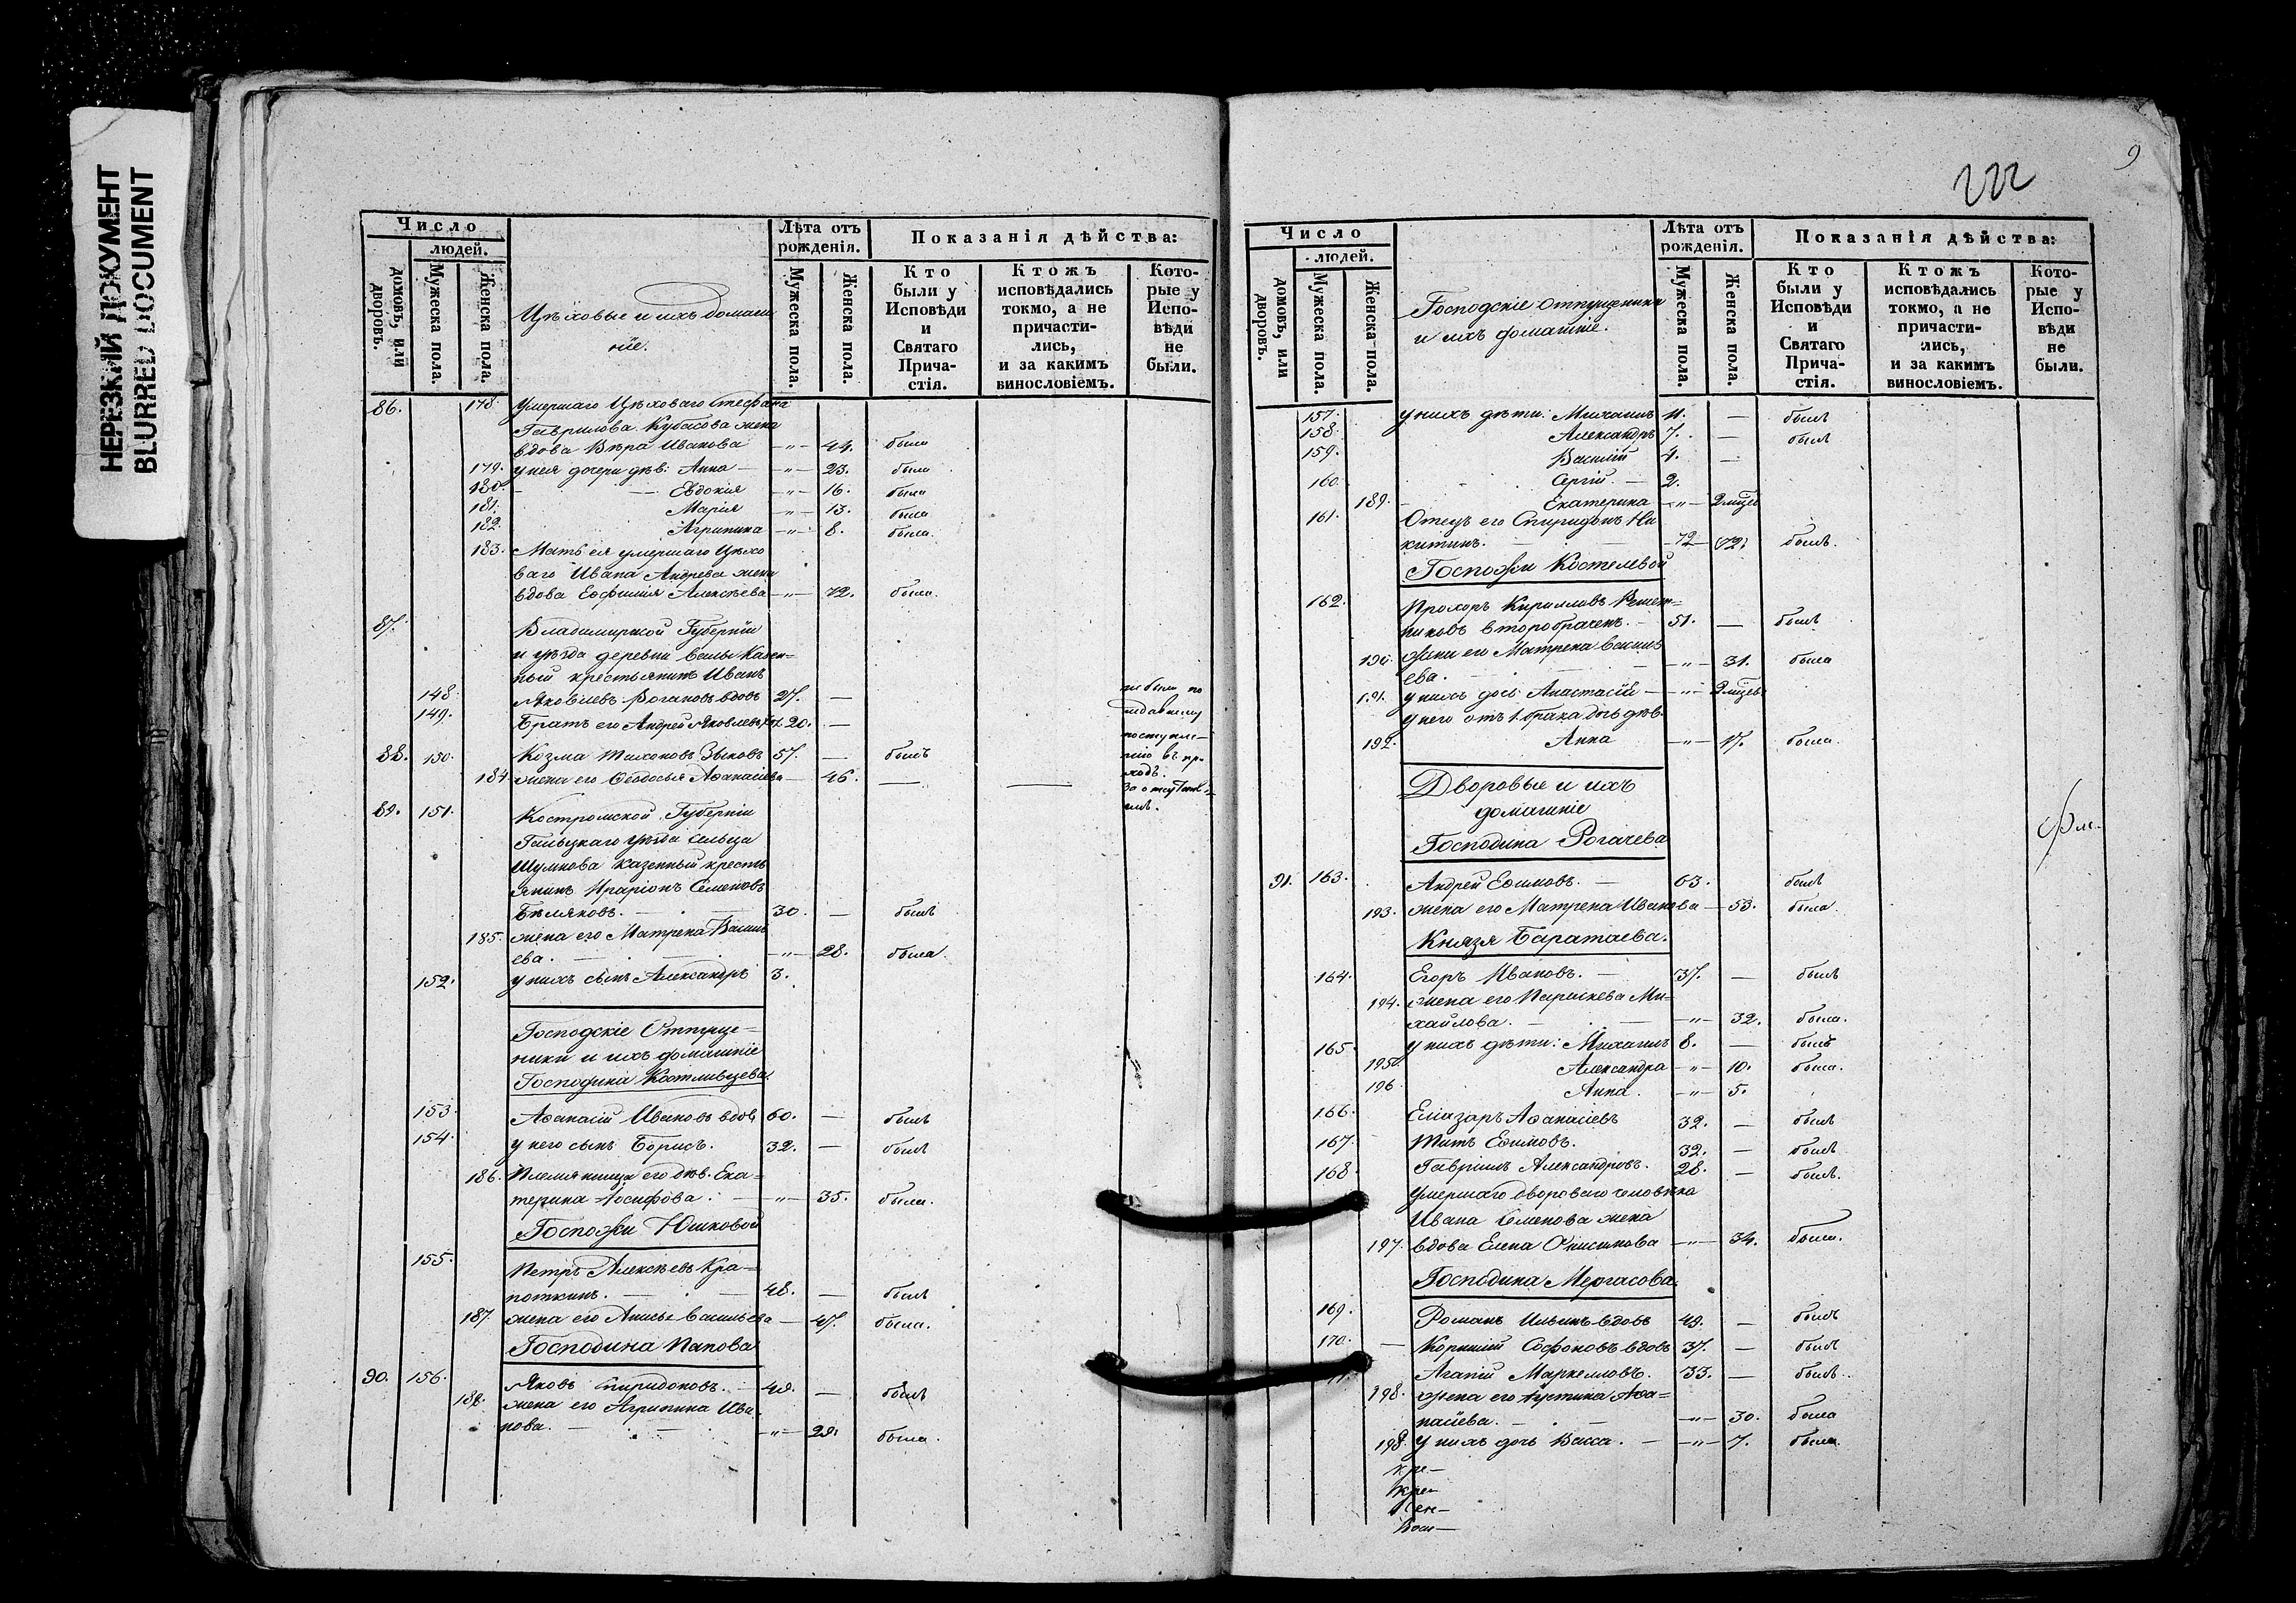 НЕРЕЗКИЙ ДОКУМЕНТ
BLURRED DOCUMENT
Число
людей.
домовъ, или дворовъ.
Мужеска пола.
Женска пола.
Цѣховые и ихъ домаш
ніе.
Лѣта отъ рожденія.
Мужеска пола.
Женска пола.
Показанія дѣйства:
Кто были у Исповѣди и Святаго Прича-стія.
Ктожъ исповѣдались токмо, а не причасти-лись, и за какимъ винословіемъ.
Кото-рые у Испо-вѣди не были.
86. 178. Умершаго Цѣховаго Стефана
Гаврилова Кубасова жена
вдова Вѣра Иванова — „ — 44. была
179. у нея дочери дѣв: Анна — — „ — 23. была
180. — Евдокія — „ — 16. была
181. Марія — „ — 13. была
182. Агрипина — „ — 8. была.
183. Мать ея умершаго Цѣхо
ваго Ивана Андреева жена
вдова Евфимія Алексѣева — „ — 72. была.
87. Владимирской Губерніи
и уѣзда деревни Казен=
ный крестьянинъ Иванъ
148. Яковлевъ вдовъ 27. — не былъ по
149. Братъ его Андрей Яковлевъ 20. — недавнему
поступле-
88. 150. Козма Тихоновъ Зыковъ 57. — былъ нію въ пр-
ходъ.
184. жена его Ѳеодосья Аѳанасіева — 46. — — За отлучкою
89. 151. Костромской Губерніи
Галицкаго уѣзда сельца
Шумнова казенный кресть
янинъ Иларіонъ Семеновъ
Бѣляковъ. — 30. — былъ
185. жена его Матрена Василь
ева. — — „ — 28. была.
152. у нихъ сынъ Александръ 3.
Господскіе Отпуще=
ники и ихъ домашніе
Господина Костливцева.
153. Аѳанасій Ивановъ вдов 60. — былъ
154. у него сынъ Борисъ. 32. — былъ
186. Племянница его дѣв. Ека=
терина Іосифова. — „ — 35. была.
Госпожи Юшковой
155. Петръ Алексѣевъ Кра=
поткинъ. — 48. — былъ
187. жена его Анисья Васильева — 47. была.
Господина Панова
90. 156. Яковъ Спиридоновъ. — 49. — былъ
188. жена его Агрипина Ива
нова. — — „ — 29. была.
9
222
Число
людей.
домовъ, или дворовъ.
Мужеска пола.
Женска пола.
Господскіе Отпущеники
и ихъ домашніе.
Лѣта отъ рожденія.
Мужеска пола.
Женска пола.
Показанія дѣйства:
Кто были у Исповѣди и Святаго Прича-стія.
Ктожъ исповѣдались токмо, а не причасти-лись, и за какимъ винословіемъ.
Кото-рые у Испо-вѣди не были.
157. у нихъ дѣти: Михаилъ 11. — былъ
158. Александръ 7. — былъ
159. Василій 4. —
160. Сергій. — 2.
189. Екатерина — „ — 2 мѣсц
161. Отецъ его Спиридонъ Ни
китинъ. — 72 — былъ.
Госпожи Костелевой
162. Прохоръ Кирилловъ Решет=
никовъ второбрачен. — 51. — былъ
190. жена его Матрена Василь
ева. — — „ — 31. была
191. у нихъ дочь Анастасія — — „ — 2 мѣсц
у него отъ 1. брака дочь дѣв.
192. Анна — „ — 17. была.
Дворовые и ихъ
домашніе
Господина Рогачева
91. 163. Андрей Еѳимовъ. — 63. былъ
193. жена его Матрена Иванова — 53. была.
Князя Баратаева.
164. Егоръ Ивановъ. — 37. — былъ
194. жена его Параскева Ми=
хайлова. — — „ — 32. была.
165. у нихъ дѣти: Михаилъ 8. — былъ
195. Александра — „ — 10. была.
196. Анна. — „ — 5.
166. Еліазаръ Аѳанасіевъ 32. — былъ
167. Титъ Еѳимовъ. 32. — былъ.
168. Гавріилъ Александровъ. 28. — былъ.
умершаго двороваго человѣка
Ивана Семенова жена
197. вдова Елена Онисимова — „ — 34. была.
Господина Мергасова.
169. Романъ Ильинъ вдовъ 49. — былъ
170. — Корнилій Софоновъ вдовъ 37. — былъ
Агапій Маркелловъ. 33. — былъ.
198. жена его Іустина Аѳа=
насіева. — — „ — 30. была
199. у нихъ дочь Васса. — — „ — 7. была.